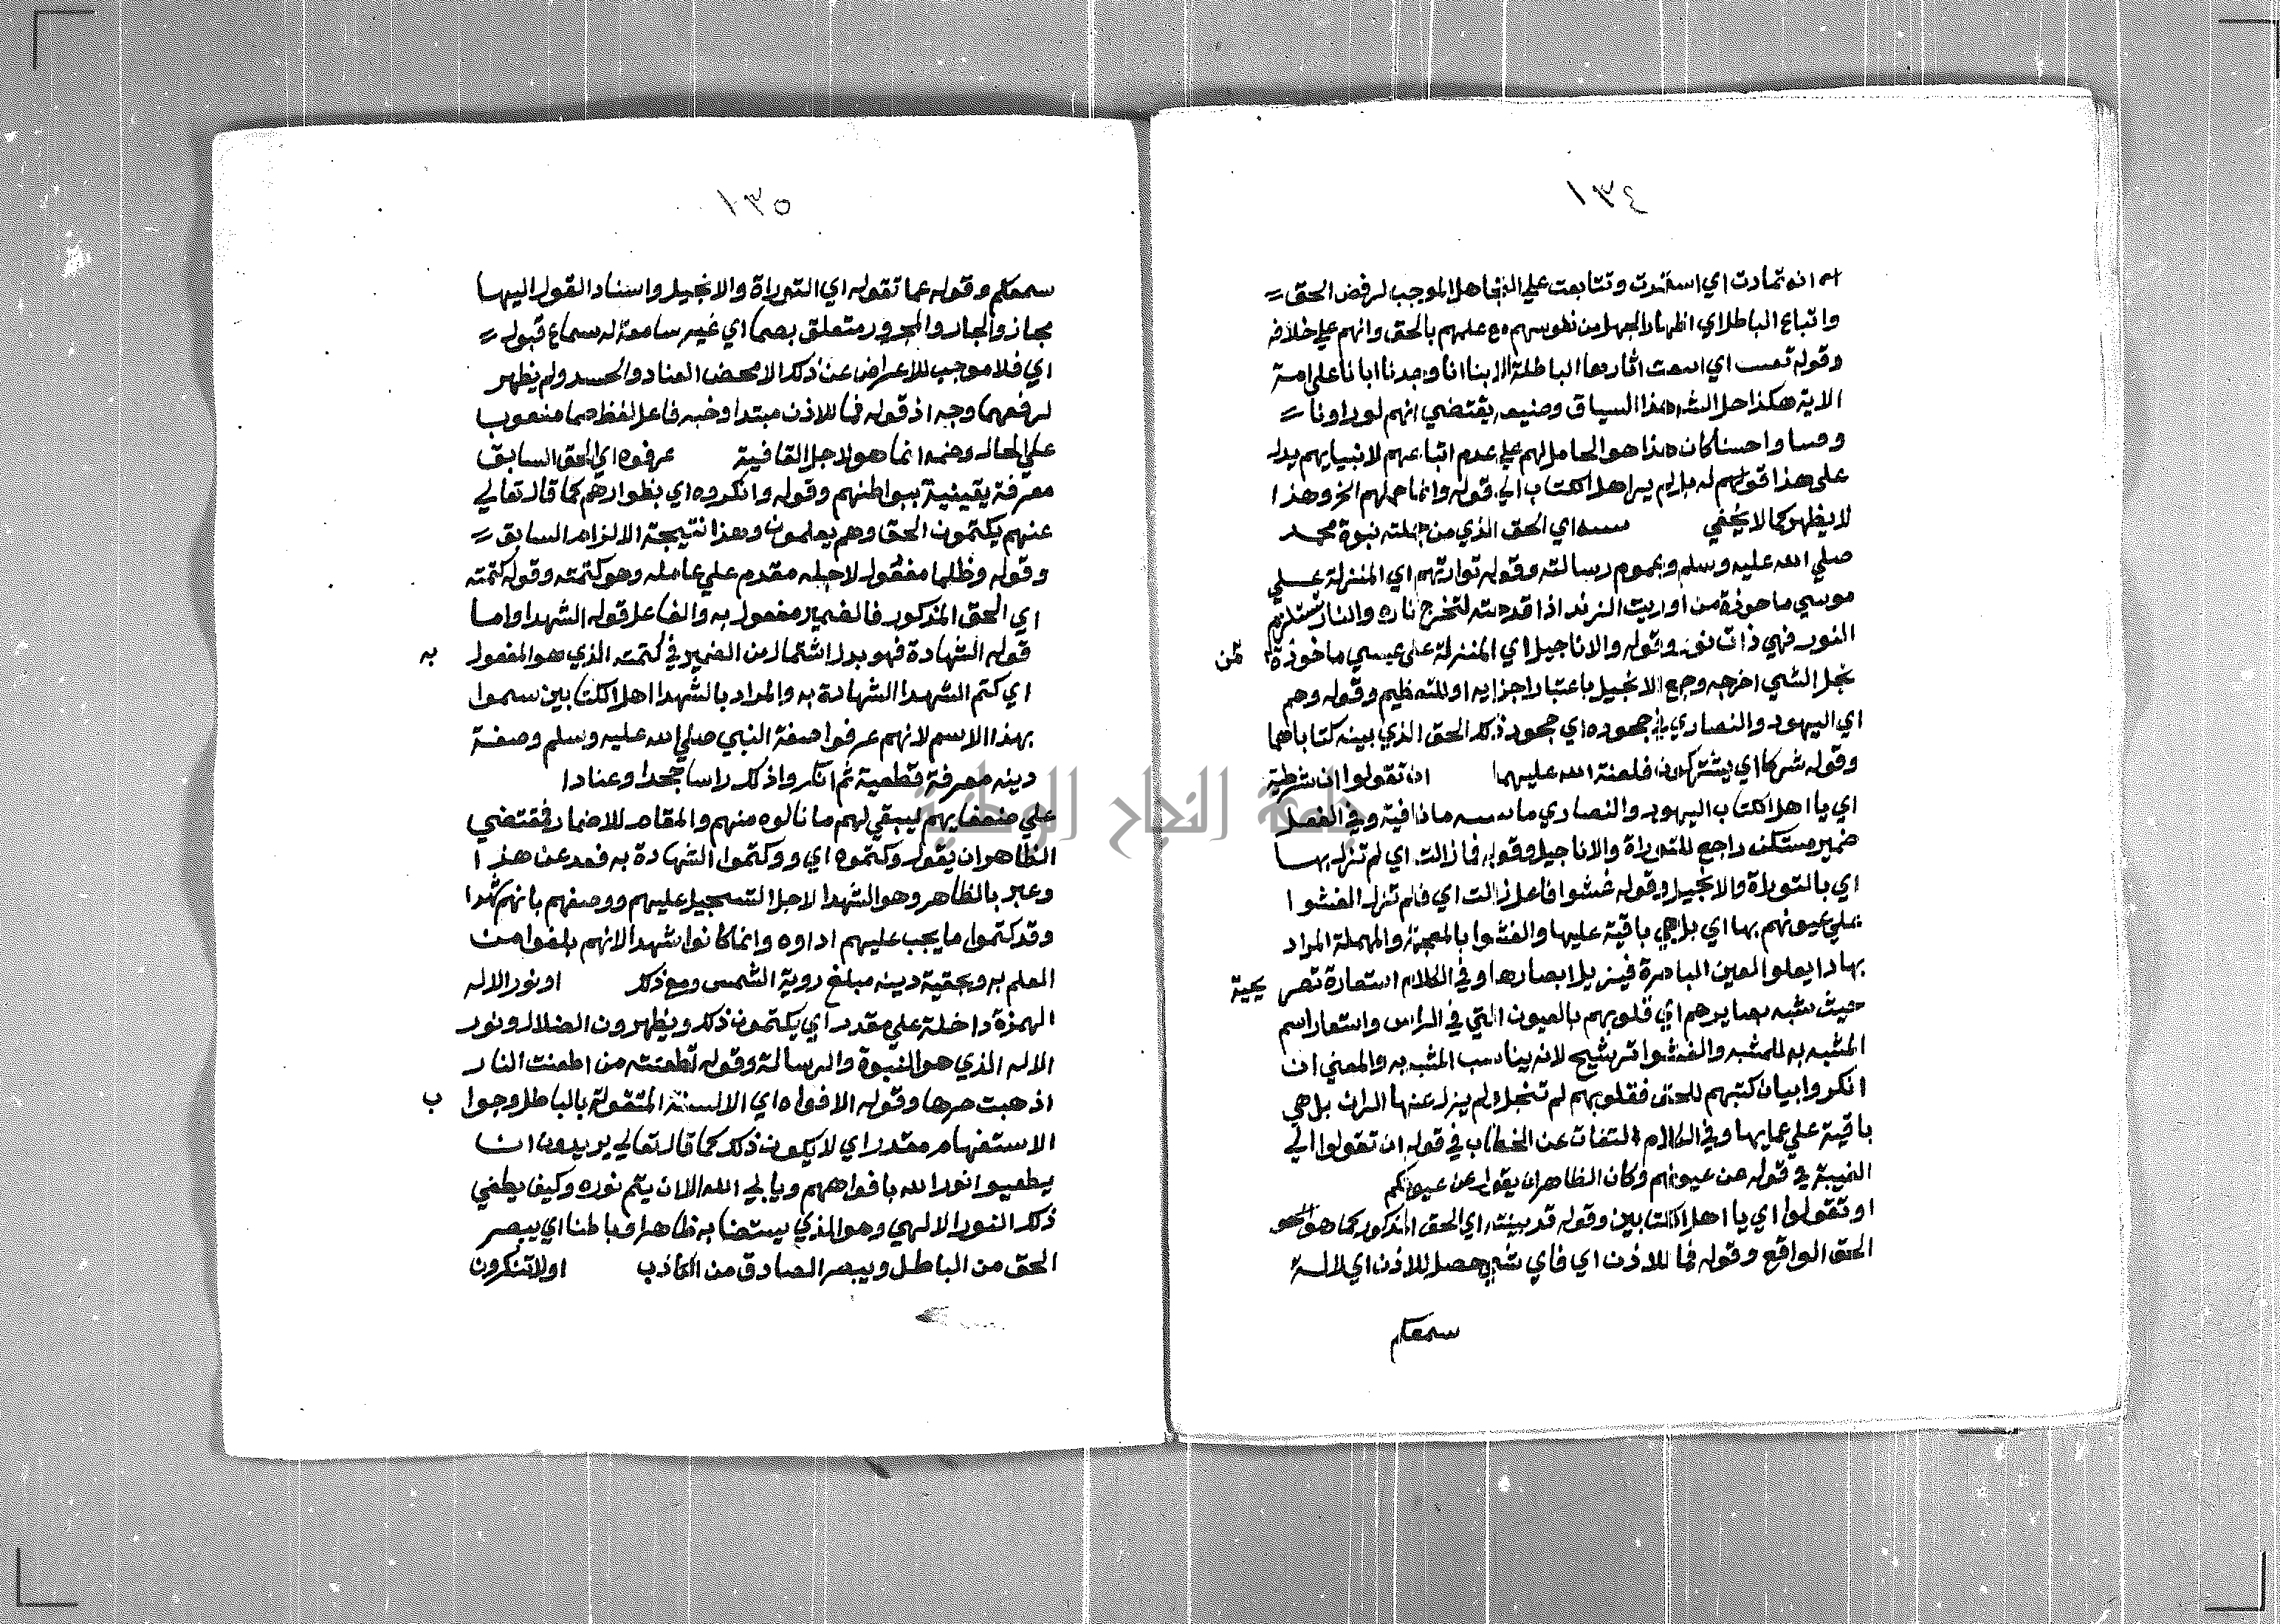 ١٣٤
انه تمادت اي استمرت وتتابعت علي التجاهل الموجب لرفض الحق
واتباع الباطل اي اظهار الجهل من نفوسهم مع علمهم بالحق وانهم علي خلافه
وقوله اي الباطلة انا وجدنا ابانا علي امة
الاية هكذا حل الش هذا السياق وصنيعه يقتضي انهم لو راونا
وحسنا كان هذا هو الحامل لهم علي عدم اتباعهم لانبيايهم يدل
علي هذا قولهم له اهل الكتاب الي قوله وانما حملهم الخ وهذا
لا يظهر كما لا يخفي اي الحق الذي من جملته نبوة محمد
صلي الله عليه وسلم وبعموم رسالته وقوله توراتهم اي المنزلة علي
موسي ماخوذة من اوريت الزند اذا قدحته لتخرج ناره والنار تستلزم
النور فهي ذات نور وقوله والاناجيل اي المنزلة علي عيسي ماخوذة من
نجل الشي اخرجه وجمع الانجيل باعتبار اجزايه او للتعظيم وقوله وهم
اي اليهود والنصاري في جحوده اي جحود ذلك الحق الذي بينه كتاباهما
وقوله شركا اي يشتركون فلعنة الله عليهما ان تقولوا ان شرطية
اي يا اهل الكتاب اليهود والنصاري ما نافية وفي الفعل
ضمير مستكن راجع للتوراة والاناجيل وقوله فما زالت اي لم تزل بها
اي بالتوراة والانجيل وقوله غشوا فاعل زالت اي فلم تزل الغشوا
علي عيونهم بها اي بل هي باقية عليها والغشوا بالمعجمة والمهملة المراد
بها ما يعلو العين الباصرة فيزيل ابصارها وفي الكلام استعارة تصر يحية
حيث شبه بصايرهم اي قلوبهم بالعيون التي في الراس واستعار اسم
المشبه به للمشبه والغشوا ترشيح لانه يناسب المشبه به والمعني ان
انكروا بيان كتبهم للحق فقلوبهم لم تنجل ولم يزل عنها الران بل هي
باقية علي عمايها وفي الكلام التفات عن الخطاب في قوله ان تقولوا الي
الغيبة في قوله عن عيونهم وكان الظاهر ان يقول عن عيونكم
او تقولوا اي يا اهل الكتابين وقوله قد بينته اي الحق المذكور كما هو
الحق الواقع وقوله فما للاذن اي فاي شي حصل للاذن اي لالة
سمعكم
١٣٥
سمعكم وقوله عما تقوله اي التوراة والانجيل واسناد القول اليها
مجاز والجار والمجرور متعلق بصما اي غير سامعة له سماع قبول
اي فلا موجب للاعراض عن ذلك الا محض العناد والحسد ولم يظهر
لرفعهما وجه اذ قوله فما للاذن مبتدا وخبر فاعل لفظ صما منصوب
علي الحال وضمه انما هو لاجل القافية عرفوه اي الحق السابق
معرفة يقينية ببواطنهم وقوله وانكروه اي بظواهرهم كما قال تعالي
عنهم يكتمون الحق وهم يعلمون وهذا نتيجة الالزام السابق
وقوله وظلما مفعول لاجله مقدم علي عامله وهو كتمته وقوله كتمته
اي الحق المذكور فالضمير مفعول به والفاعل قوله الشهدا واما
قوله الشهادة فهو بدل اشتمال من الضمير في كتمته الذي هو المفعول به
اي كتم الشهدا الشهادة به والمراد بالشهدا اهل الكتابين سموا
بهذا الاسم لانهم عرفوا صفة النبي صلي الله عليه وسلم وصفة
دينه معرفة قطعية ثم انكروا ذلك راسا جحدا وعنادا
علي ضعفايهم ليبقي لهم ما نالوه منهم والمقام للاضمار فمقتضي
الظاهر ان يقول وكتموه اي ووكتموا الشهادة به فعدل عن هذا
وعبر بالظاهر وهو الشهدا لاجل التسجيل عليهم ووصفهم بانهم شهدا
وقد كتموا ما يجب عليهم اداوه وانما كانوا شهدا لانهم بلغوا من
العلم به وبحقية دينه مبلغ روية الشمس ومع ذلك او نور الاله
الهمزة داخلة علي مقدر اي يكتمون ذلك ويظهرون الضلال ونور
الاله الذي هو النبوة والرسالة وقوله تطفئه من اطفئت النار
اذهبت حرها وقوله الافواه اي الالسنة المتقولة بالباطل وجواب
الاستفهام مقدر اي لا يكون ذلك كما قال تعالي يريدون ان
يطفيوا نور الله بافواههم ويابي الله الا ان يتم نوره وكيف يطفي
ذلك النور الالهي وهو الذي يستضا به ظاهرا وباطنا اي يبصر
الحق من الباطل ويبصر الصادق من الكاذب اولا تنكرون
جامعة النجاح الوطنية